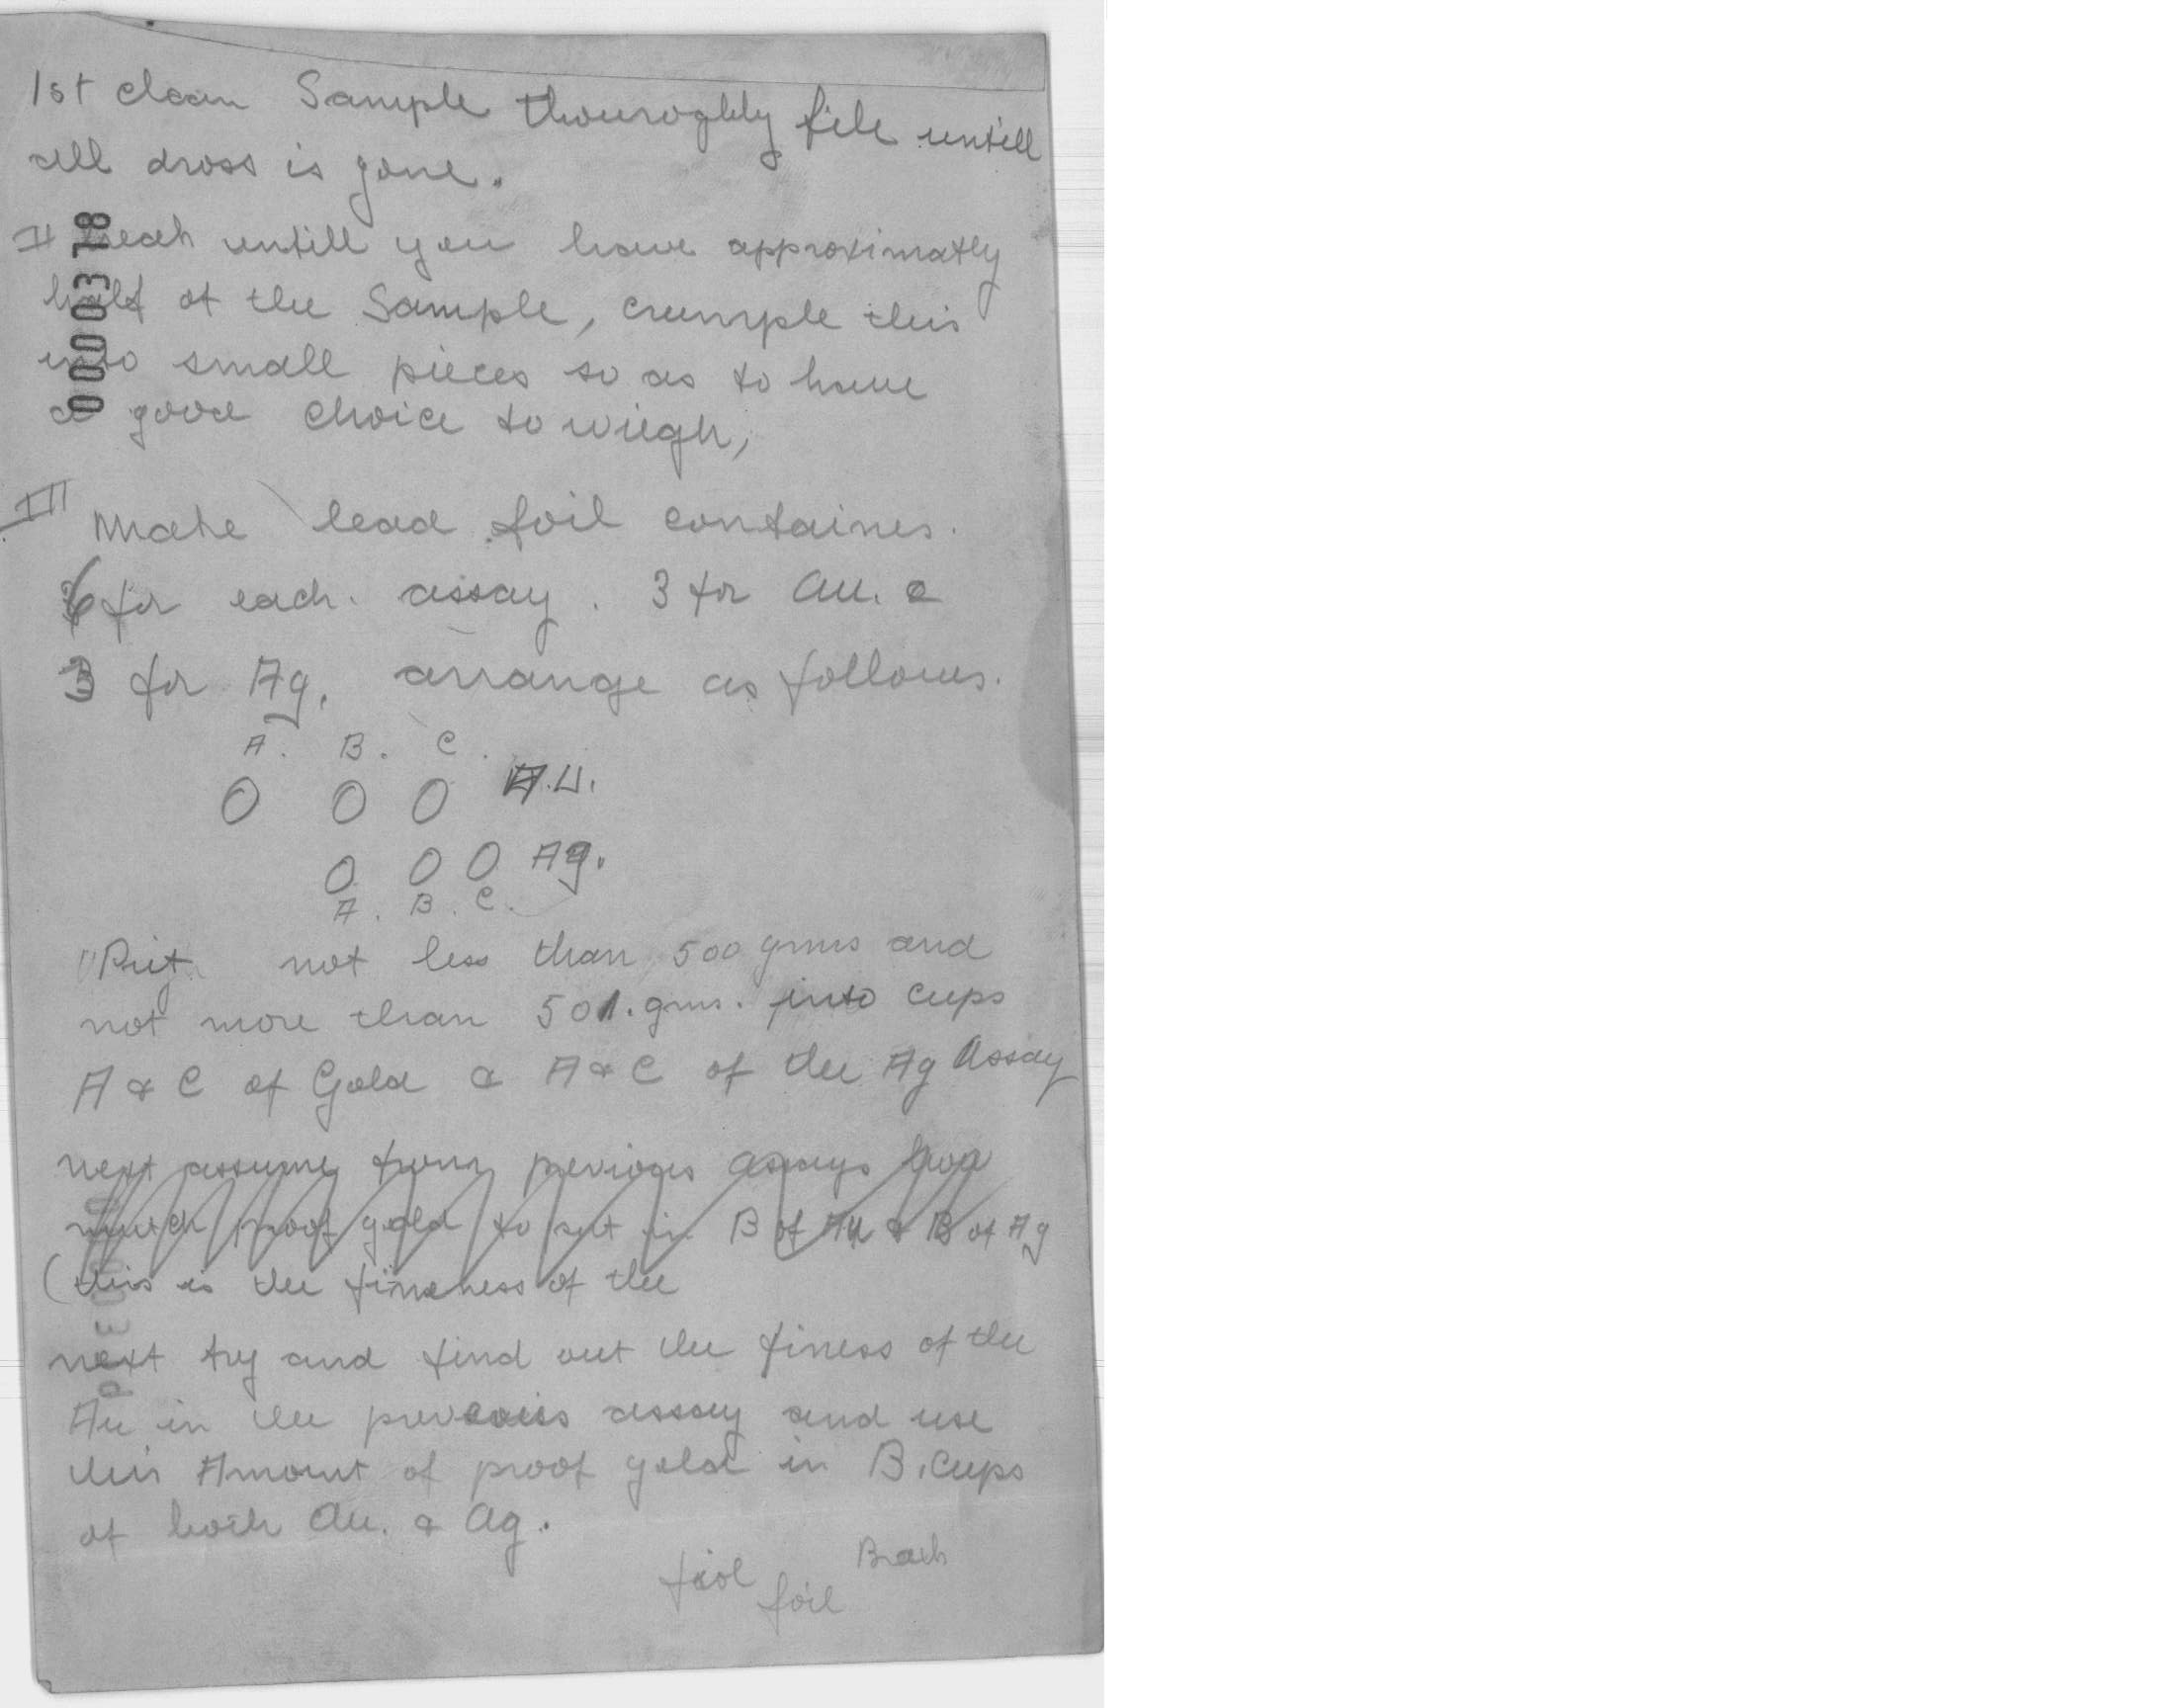 1st clean Sample thouroghly file untill
all dross is gone.
II untill you have approximatly
half of the Sample, crumple this
into small pieces so as to have
a good choice to wiegh,
III Make lead foil containes.
6 for each. assay. 3 for Au. &
3 for Ag. arrange as follows.
A. B. C.
O O O A.U.
O O O Ag.
A. B. C.
Put not less than 500 gms and
not more than 501. gms. into cups
A & C of Gold & A & C of the Ag Assay
next assume from previous assays how
much proof gold to put in B of Au & B of Ag
(this is the fineness of the
next try and find out the finess of the
Au in the previous assay and use
this Amount of proof gold in B. Cups
of both Au. & Ag.
foil
00000378